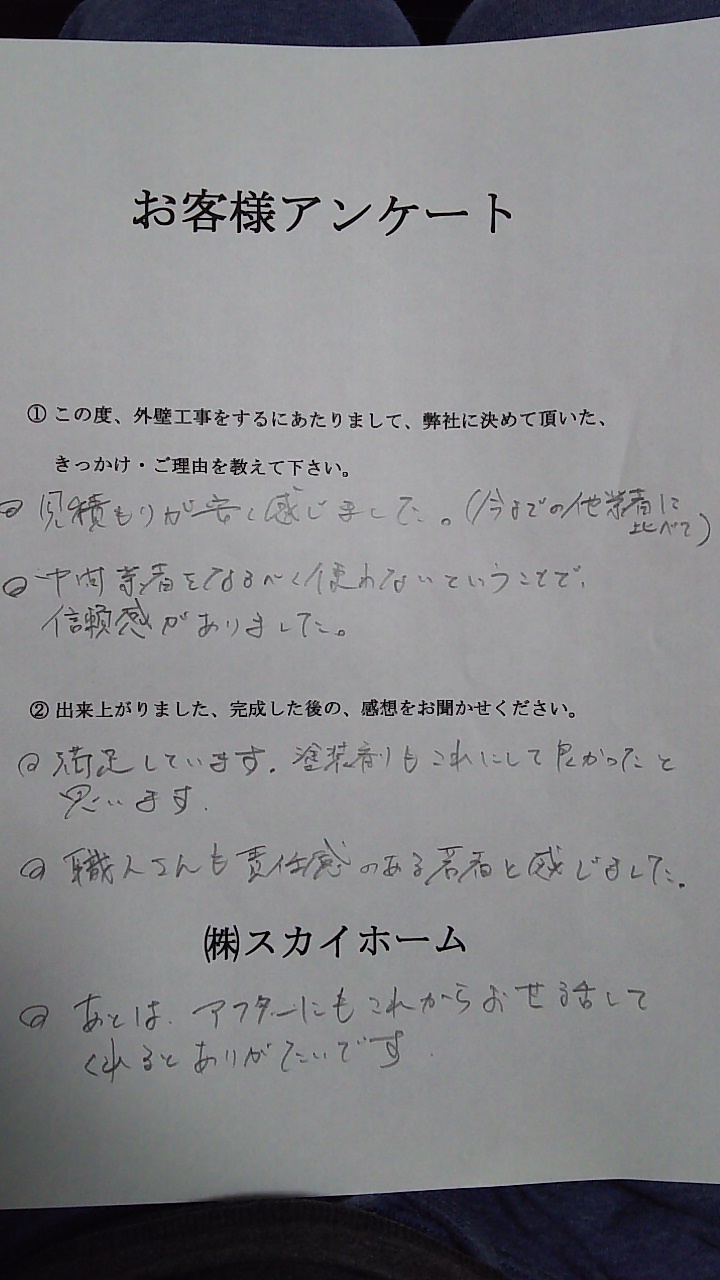 お客様アンケート
① この度、外壁工事をするにあたりまして、弊社に決めて頂いた、
きっかけ・ご理由を教えて下さい。
◎ 見積もりが安く感じました。(今までの他業者に
比べて)
◎ 中間業者をなるべく使わないということで、
信頼感がありました。
② 出来上がりました、完成した後の、感想をお聞かせください。
◎ 満足しています。塗装剤もこれにして良かったと
思います。
◎ 職人さんも責任感のある若者と感じました。
㈱スカイホーム
◎ あとは、アフターにもこれからお世話して
くれるとありがたいです。